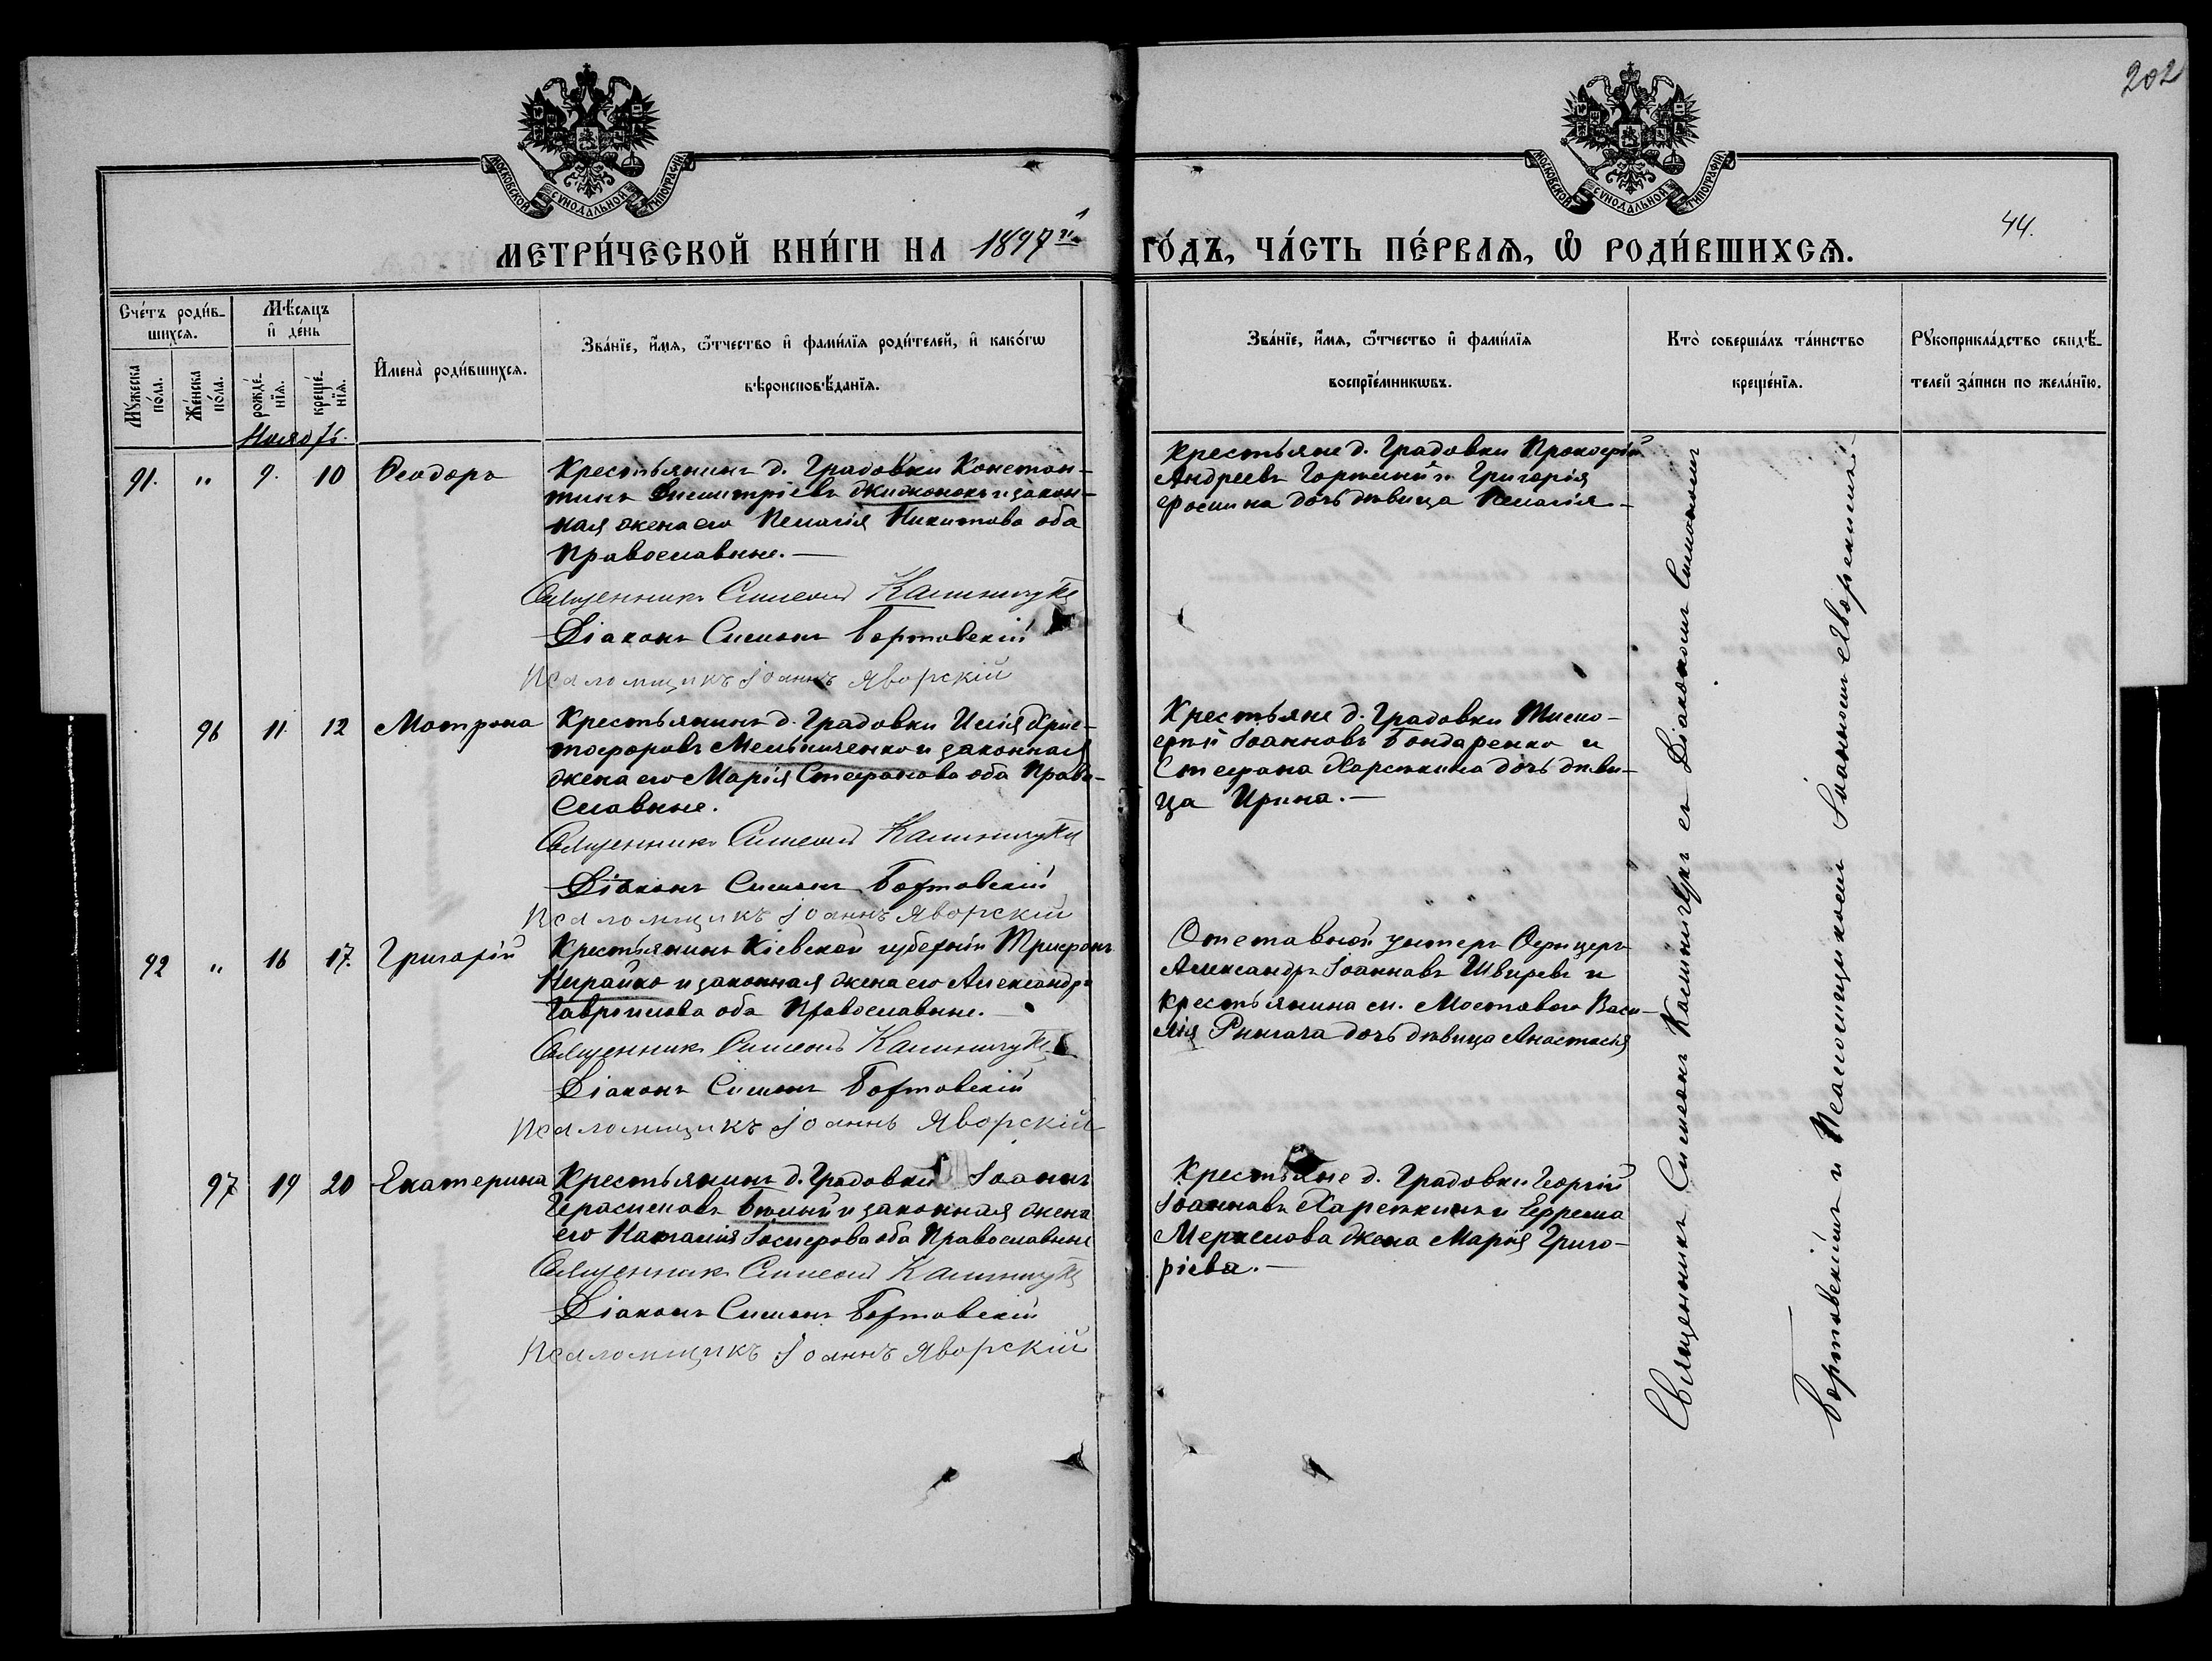 202
МОСКОВСКОЙ СѴНОДАЛЬНОЙ ТИПОГРАФІИ
МОСКОВСКОЙ СѴНОДАЛЬНОЙ ТИПОГРАФІИ
МЕТРИ́ЧЕСКОЙ КНИ́ГИ НА 1897й ГО́ДЪ, ЧА́СТЬ ПЕ́РВАѦ, Ѽ РОДИ́ВШИХСѦ.
44.
Сче́тъ роди́в-
шихсѧ.
Мꙋ́жеска по́ла.
Же́нска по́ла.
Мѣ́сѧцъ
и҆ де́нь
рожде́-
нїѧ.
креще́-
нїѧ.
И҆мена̀ роди́вшихсѧ.
Зва́нїе, и҆́мѧ, ѻ҆́тчество и҆ фами́лїѧ роди́телей, и҆ како́гѡ
вѣроисповѣ́данїѧ.
Зва́нїе, и҆́мѧ, ѻ҆́тчество и҆ фами́лїѧ
воспрїе́мникѡвъ.
Кто̀ соверша́лъ та́инство
креще́нїѧ.
Рꙋкоприкла́дство свидѣ́-
телей за́писи по жела́нїю.
Ноябрь.
91. " 9. 10 Ѳеодоръ
Крестьянинъ д. Градовки Констан-
тинъ Димитріевъ и закон-
ная жена его Пелагія Никитова оба
Православные.—
Священникъ Симеонъ Калинчукъ
Діаконъ Симонъ Бортовскій
Псаломщикъ Іоаннъ Яворскій
Крестьяне д. Градовки Прокофій
Андреевъ и Григорія
дочь дѣвица Пелагія—
96 11. 12 Матрона
Крестьянинъ д. Градовки Илія Хрис-
тофоровъ Мельниченко и законная
жена его Марія Стефанова оба Право-
славные.
Священникъ Симеонъ Калинчукъ
Діаконъ Симонъ Бортовскій
Псаломщикъ Іоаннъ Яворскій
Крестьяне д. Градовки Тимо-
фей Іоанновъ Бондаренко и
Стефана Харькина дочь дѣви-
ца Ирина.—
92 " 16 17. Григорій
Крестьянинъ Кіевской губерніи Трифонъ
и законная жена его Александра
Гавриилова оба Православные.—
Священникъ Симеонъ Калинчукъ
Діаконъ Симонъ Бортовскій
Псаломщикъ Іоаннъ Яворскій
Отставной унтеръ Офицеръ
Александръ Іоанновъ Швыревъ и
крестьянина с. Мостового Васи-
лія дочь дѣвица Анастасія
97 19 20 Екатерина
Крестьянинъ д. Градовки Іоаннъ
Герасимовъ и законная жена
его Наталія Іосифова оба Православные
Священникъ Симеонъ Калинчукъ
Діаконъ Симонъ Бортовскій
Псаломщикъ Іоаннъ Яворскій
Крестьяне д. Градовки Георгій
Іоанновъ Харькинъ и Ефрема
Меркелова жена Марія Григо-
ріева.—
Священникъ Симеонъ Калинчукъ съ Діакономъ Симономъ
Бортовскимъ и Псаломщикомъ Іоанномъ Яворскимъ.—